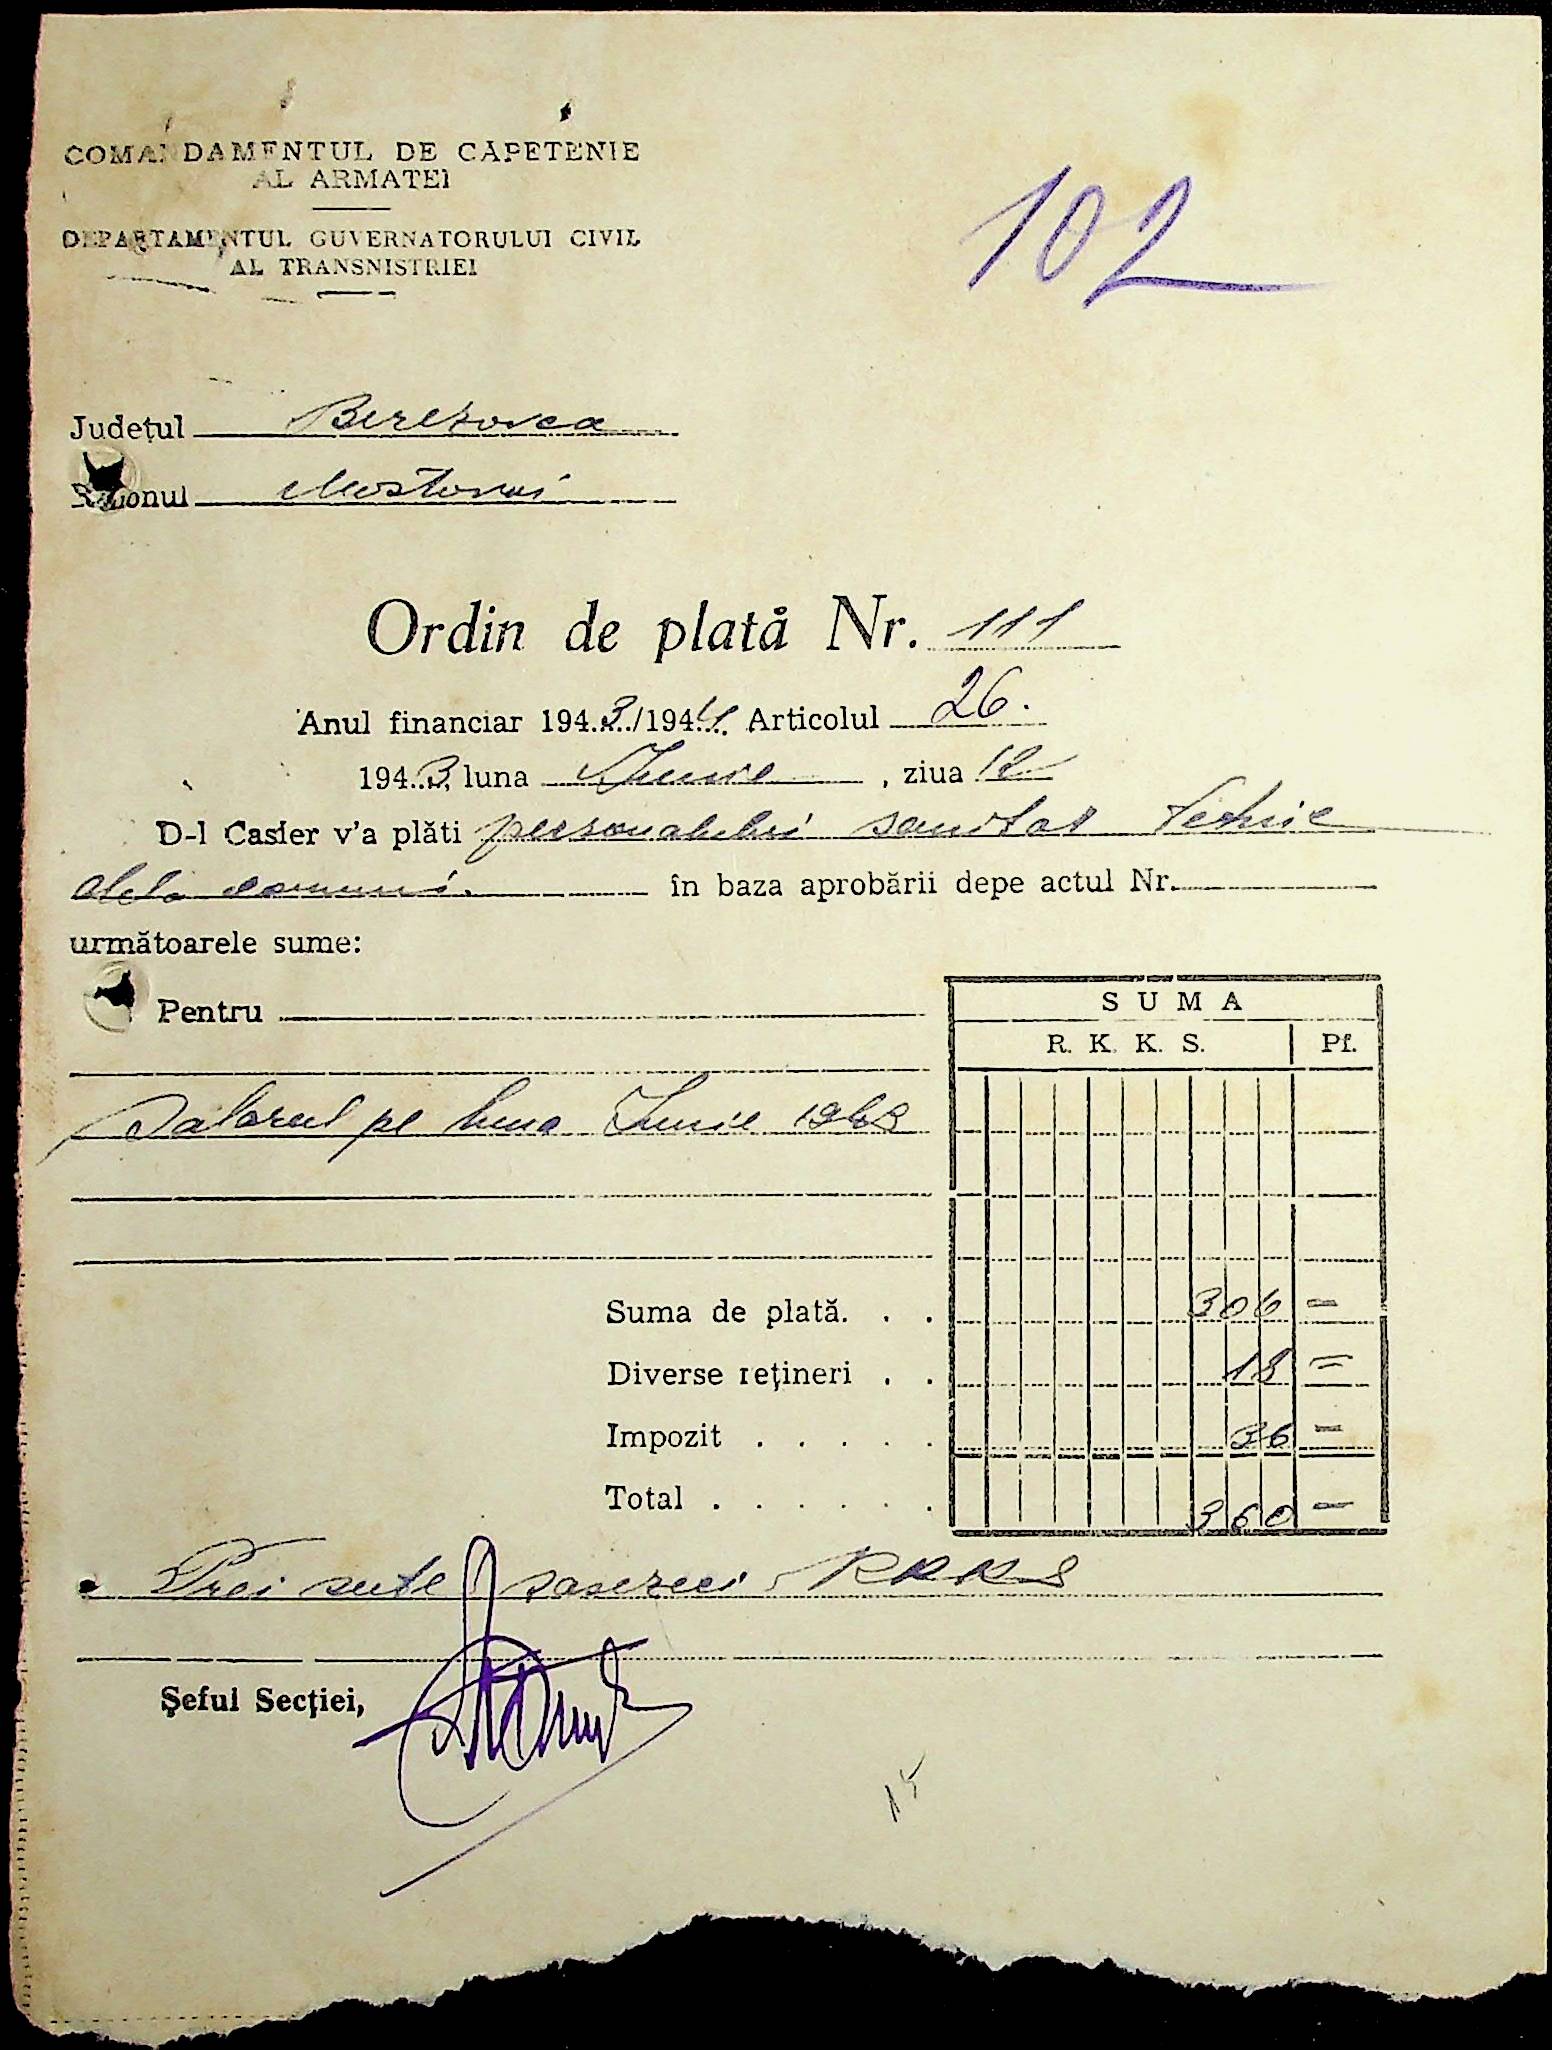 COMANDAMENTUL DE CAPETENIE
AL ARMATEI
DEPARTAMENTUL GUVERNATORULUI CIVIL
AL TRANSNISTRIEI
102
Județul Berezovca
Raionul Mostovoi
Ordin de plată Nr. 111
Anul financiar 1943/1944 Articolul 26.
1943, luna Iunie, ziua 12
D-l Casier v'a plăti personalului sanitar tehnic
dela comuni. în baza aprobării depe actul Nr.
următoarele sume:
Pentru
SUMA
R. K. K. S. Pf.
Salarul pe luna Iunie 1943
Suma de plată. . . 306 =
Diverse rețineri . . 18 =
Impozit . . . . . 36 =
Total . . . . . . 360 =
Trei sute șasezeci RKKS
Șeful Secției,
15